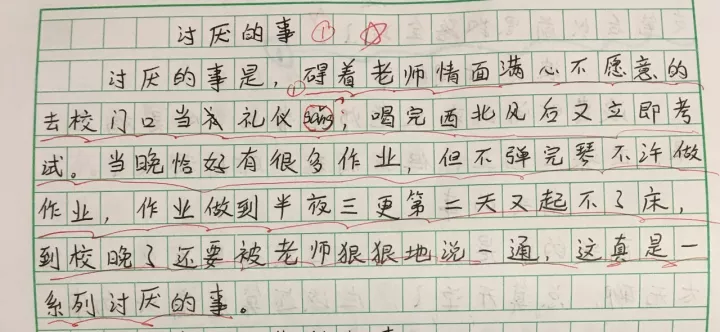 讨厌的事 ① ☆
讨厌的事是，①碍着老师情面满心不愿意的
去校门口当礼仪sang，喝完西北风后又立即考
试。当晚恰好有很多作业，但不弹完琴不许做
作业，作业做到半夜三更第二天又起不了床，
到校晚了还要被老师狠狠地说一通，这真是一
系列讨厌的事。